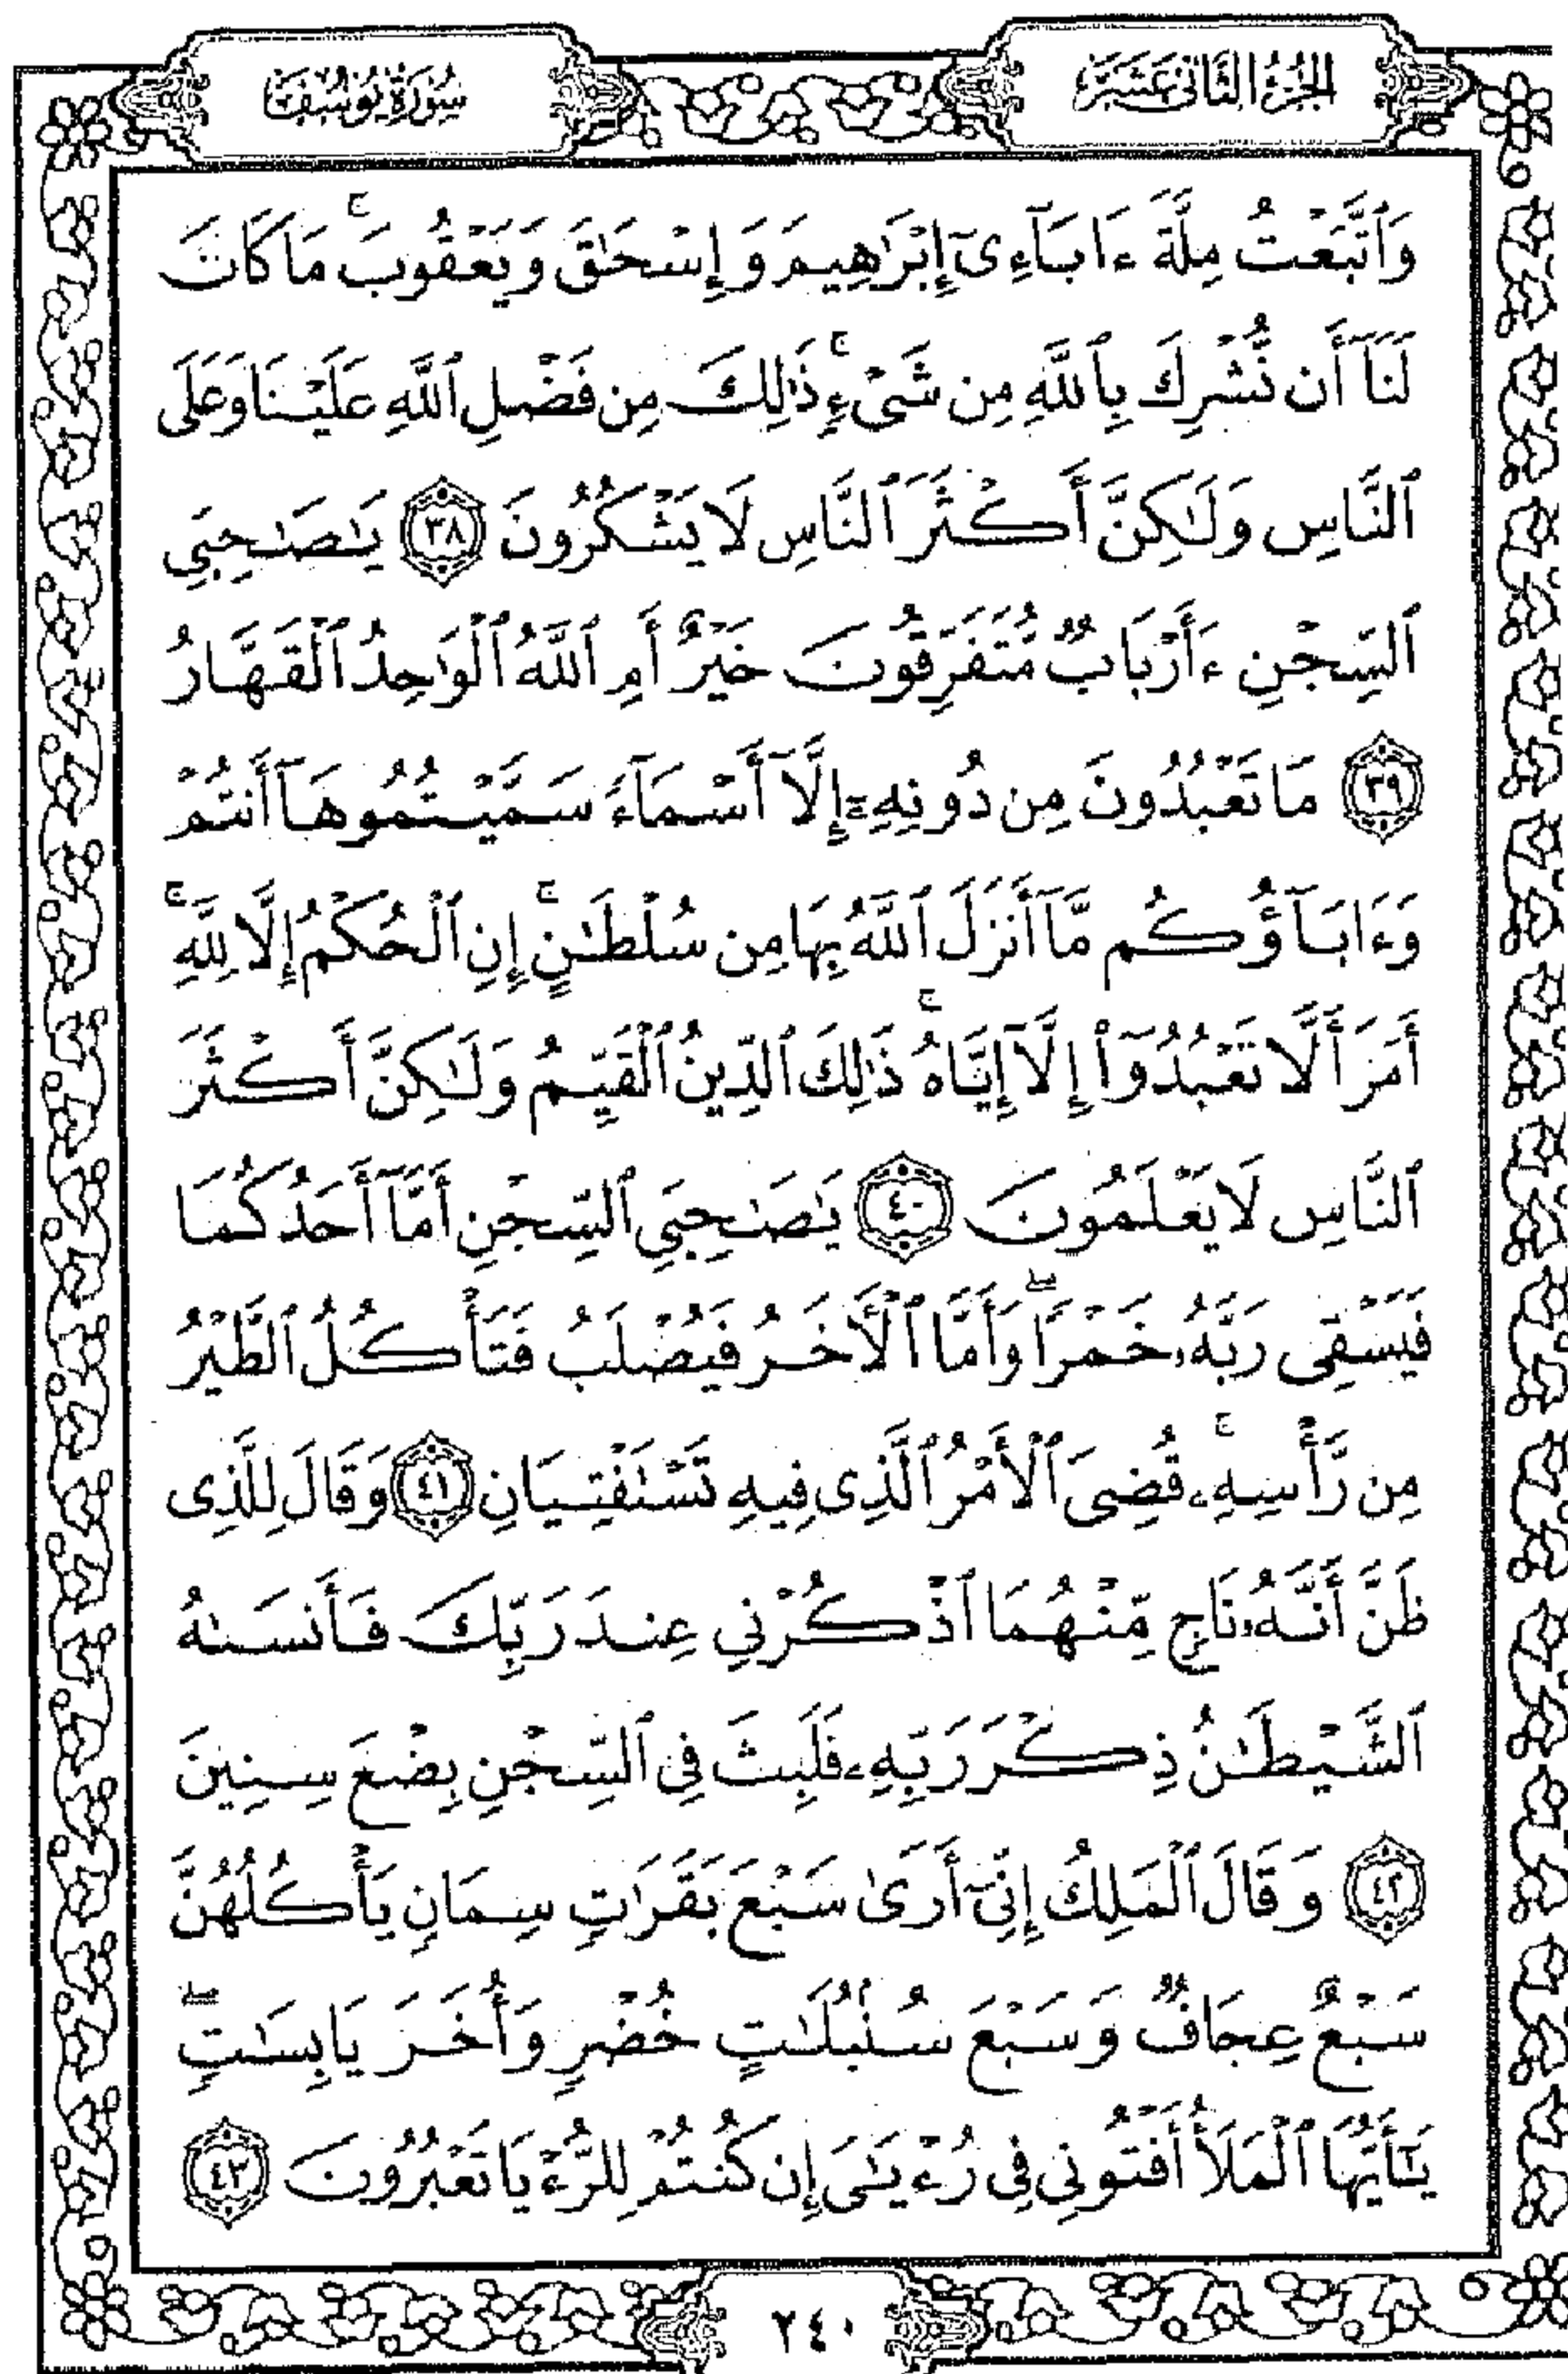 الجزء الثاني عشر
سورة يوسف
وَٱتَّبَعْتُ مِلَّةَ ءَابَآءِىٓ إِبْرَٰهِيمَ وَإِسْحَٰقَ وَيَعْقُوبَ ۚ مَا كَانَ
لَنَآ أَن نُّشْرِكَ بِٱللَّهِ مِن شَىْءٍ ۚ ذَٰلِكَ مِن فَضْلِ ٱللَّهِ عَلَيْنَا وَعَلَى
ٱلنَّاسِ وَلَٰكِنَّ أَكْثَرَ ٱلنَّاسِ لَا يَشْكُرُونَ ٣٨ يَٰصَىٰحِبَىِ
ٱلسِّجْنِ ءَأَرْبَابٌ مُّتَفَرِّقُونَ خَيْرٌ أَمِ ٱللَّهُ ٱلْوَٰحِدُ ٱلْقَهَّارُ
٣٩ مَا تَعْبُدُونَ مِن دُونِهِۦٓ إِلَّآ أَسْمَآءً سَمَّيْتُمُوهَآ أَنتُمْ
وَءَابَآؤُكُم مَّآ أَنزَلَ ٱللَّهُ بِهَا مِن سُلْطَٰنٍ ۚ إِنِ ٱلْحُكْمُ إِلَّا لِلَّهِ ۚ
أَمَرَ أَلَّا تَعْبُدُوٓا۟ إِلَّآ إِيَّاهُ ۚ ذَٰلِكَ ٱلدِّينُ ٱلْقَيِّمُ وَلَٰكِنَّ أَكْثَرَ
ٱلنَّاسِ لَا يَعْلَمُونَ ٤٠ يَٰصَٰحِبَىِ ٱلسِّجْنِ أَمَّآ أَحَدُكُمَا
فَيَسْقِى رَبَّهُۥ خَمْرًا ۖ وَأَمَّا ٱلْءَاخَرُ فَيُصْلَبُ فَتَأْكُلُ ٱلطَّيْرُ
مِن رَّأْسِهِۦ ۚ قُضِىَ ٱلْأَمْرُ ٱلَّذِى فِيهِ تَسْتَفْتِيَانِ ٤١ وَقَالَ لِلَّذِى
ظَنَّ أَنَّهُۥ نَاجٍ مِّنْهُمَا ٱذْكُرْنِى عِندَ رَبِّكَ فَأَنسَىٰهُ
ٱلشَّيْطَٰنُ ذِكْرَ رَبِّهِۦ فَلَبِثَ فِى ٱلسِّجْنِ بِضْعَ سِنِينَ
٤٢ وَقَالَ ٱلْمَلِكُ إِنِّىٓ أَرَىٰ سَبْعَ بَقَرَٰتٍ سِمَانٍ يَأْكُلُهُنَّ
سَبْعٌ عِجَافٌ وَسَبْعَ سُنۢبُلَٰتٍ خُضْرٍ وَأُخَرَ يَابِسَٰتٍ ۖ
يَٰٓأَيُّهَا ٱلْمَلَأُ أَفْتُونِى فِى رُءْيَٰىَ إِن كُنتُمْ لِلرُّءْيَا تَعْبُرُونَ ٤٣
٢٤٠